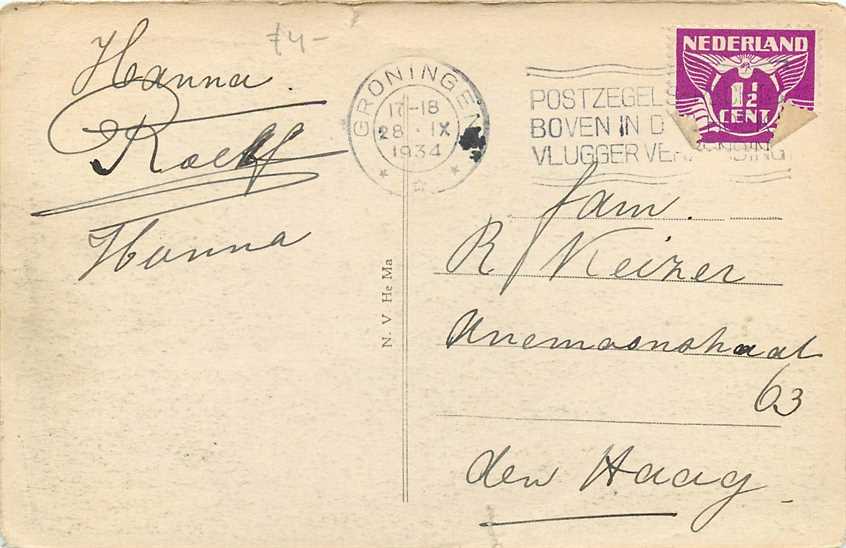 £4-
Hanna
Roelf
Hanna
GRONINGEN
17-18
28 · IX
1934
POSTZEGEL
BOVEN IN
VLUGGER
NEDERLAND
1½
CENT
N. V. He Ma
fam.
R Keizer
Anemoonstraat
63
den Haag